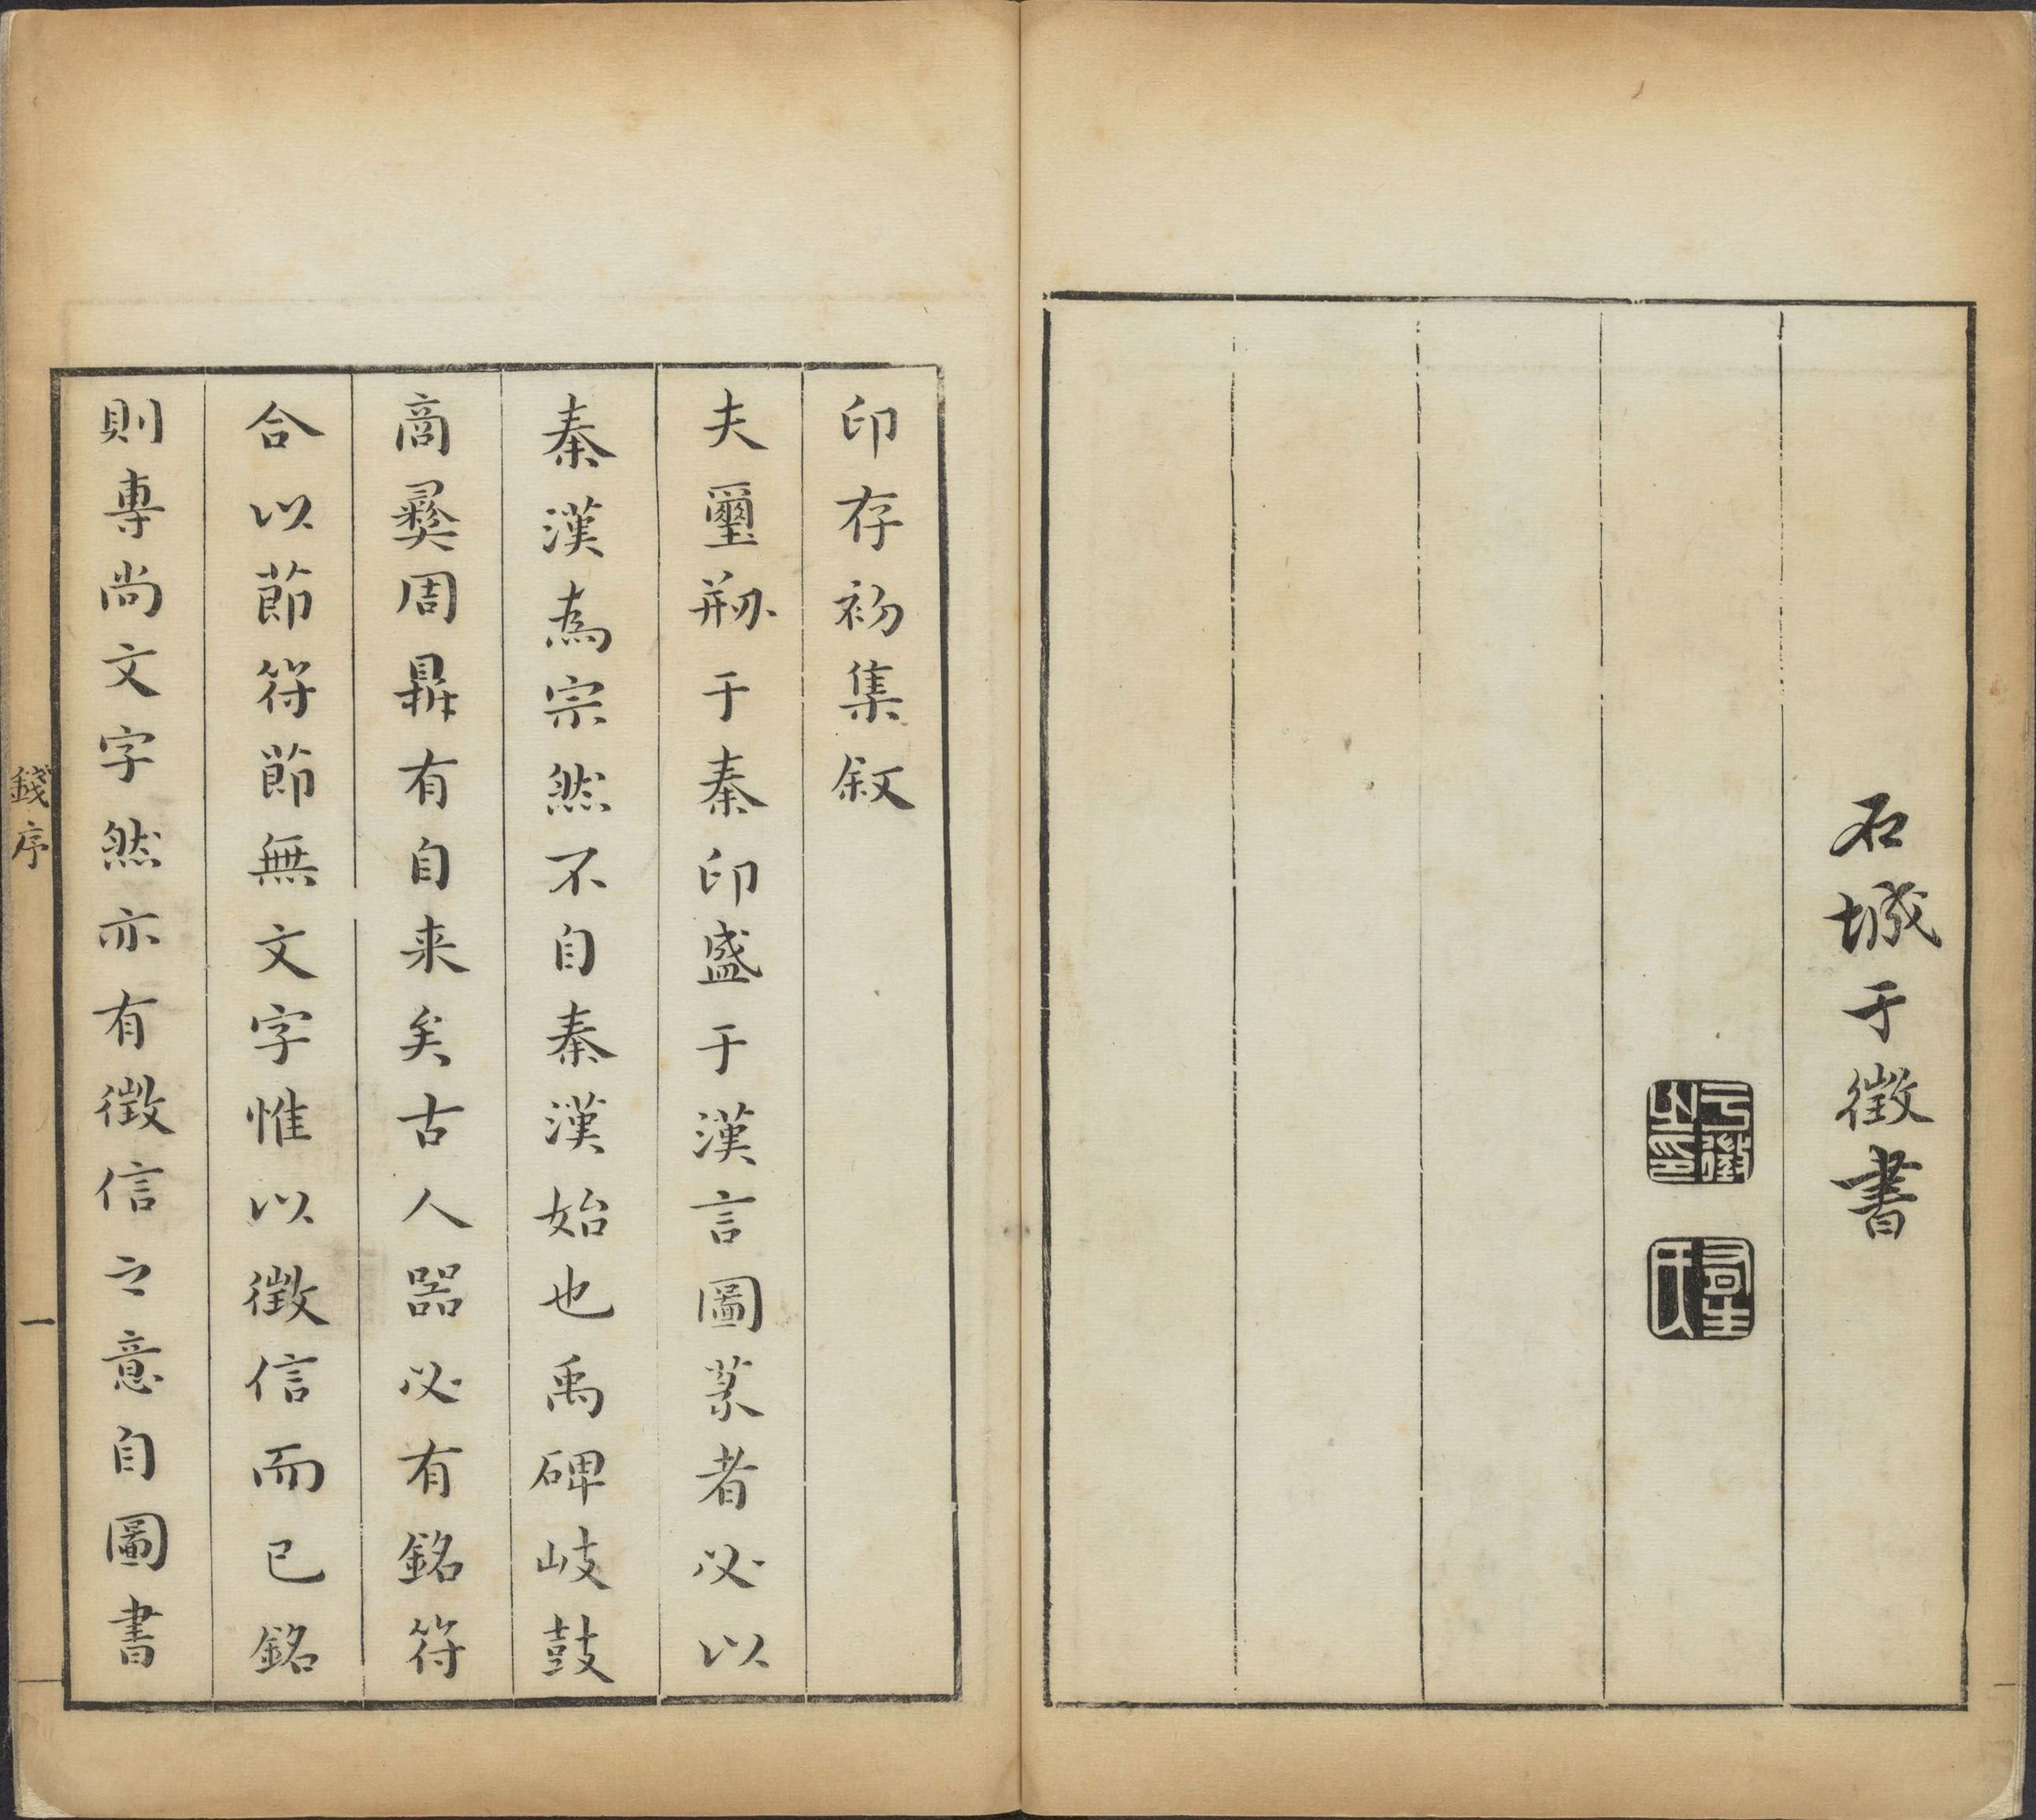 石城于徵書
于徵之印
印存初集叙
夫璽剏于秦印盛于漢言圖篆者必以
秦漢為宗然不自秦漢始也禹碑岐鼓
商彝周鼎有自来矣古人器必有銘符
合以節符節無文字惟以徵信而已銘
則專尚文字然亦有徵信之意自圖書
錢序
一